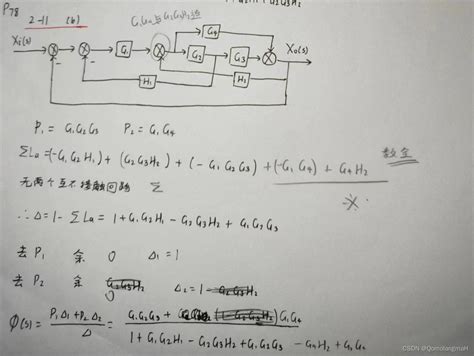 P78
2-11 (b)
G₁G₄与G₂G₃H₂
Xi(s) G₁ G₂ G₃ G₄ H₁ H₂ Xo(s)
P₁ = G₁G₂G₃ P₂ = G₁G₄
ΣLa = (-G₁G₂H₁) + (G₂G₃H₂) + (-G₁G₂G₃) + (-G₁G₄) + G₄H₂
无两个互不接触回路 Σ
∴Δ = 1 - ΣLa = 1 + G₁G₂H₁ - G₂G₃H₂ + G₁G₂G₃
去 P₁ 余 0 Δ₁ = 1
去 P₂ 余 G₂G₃H₂ Δ₂ = 1 - G₂G₃H₂
0
Φ(s) = P₁Δ₁ + P₂Δ₂ / Δ = G₁G₂G₃ + (1 - G₂G₃H₂) G₁G₄ / 1 + G₁G₂H₁ - G₂G₃H₂ + G₁G₂G₃ - G₄H₂ + G₁G₄
CSDN @QomolangmaH